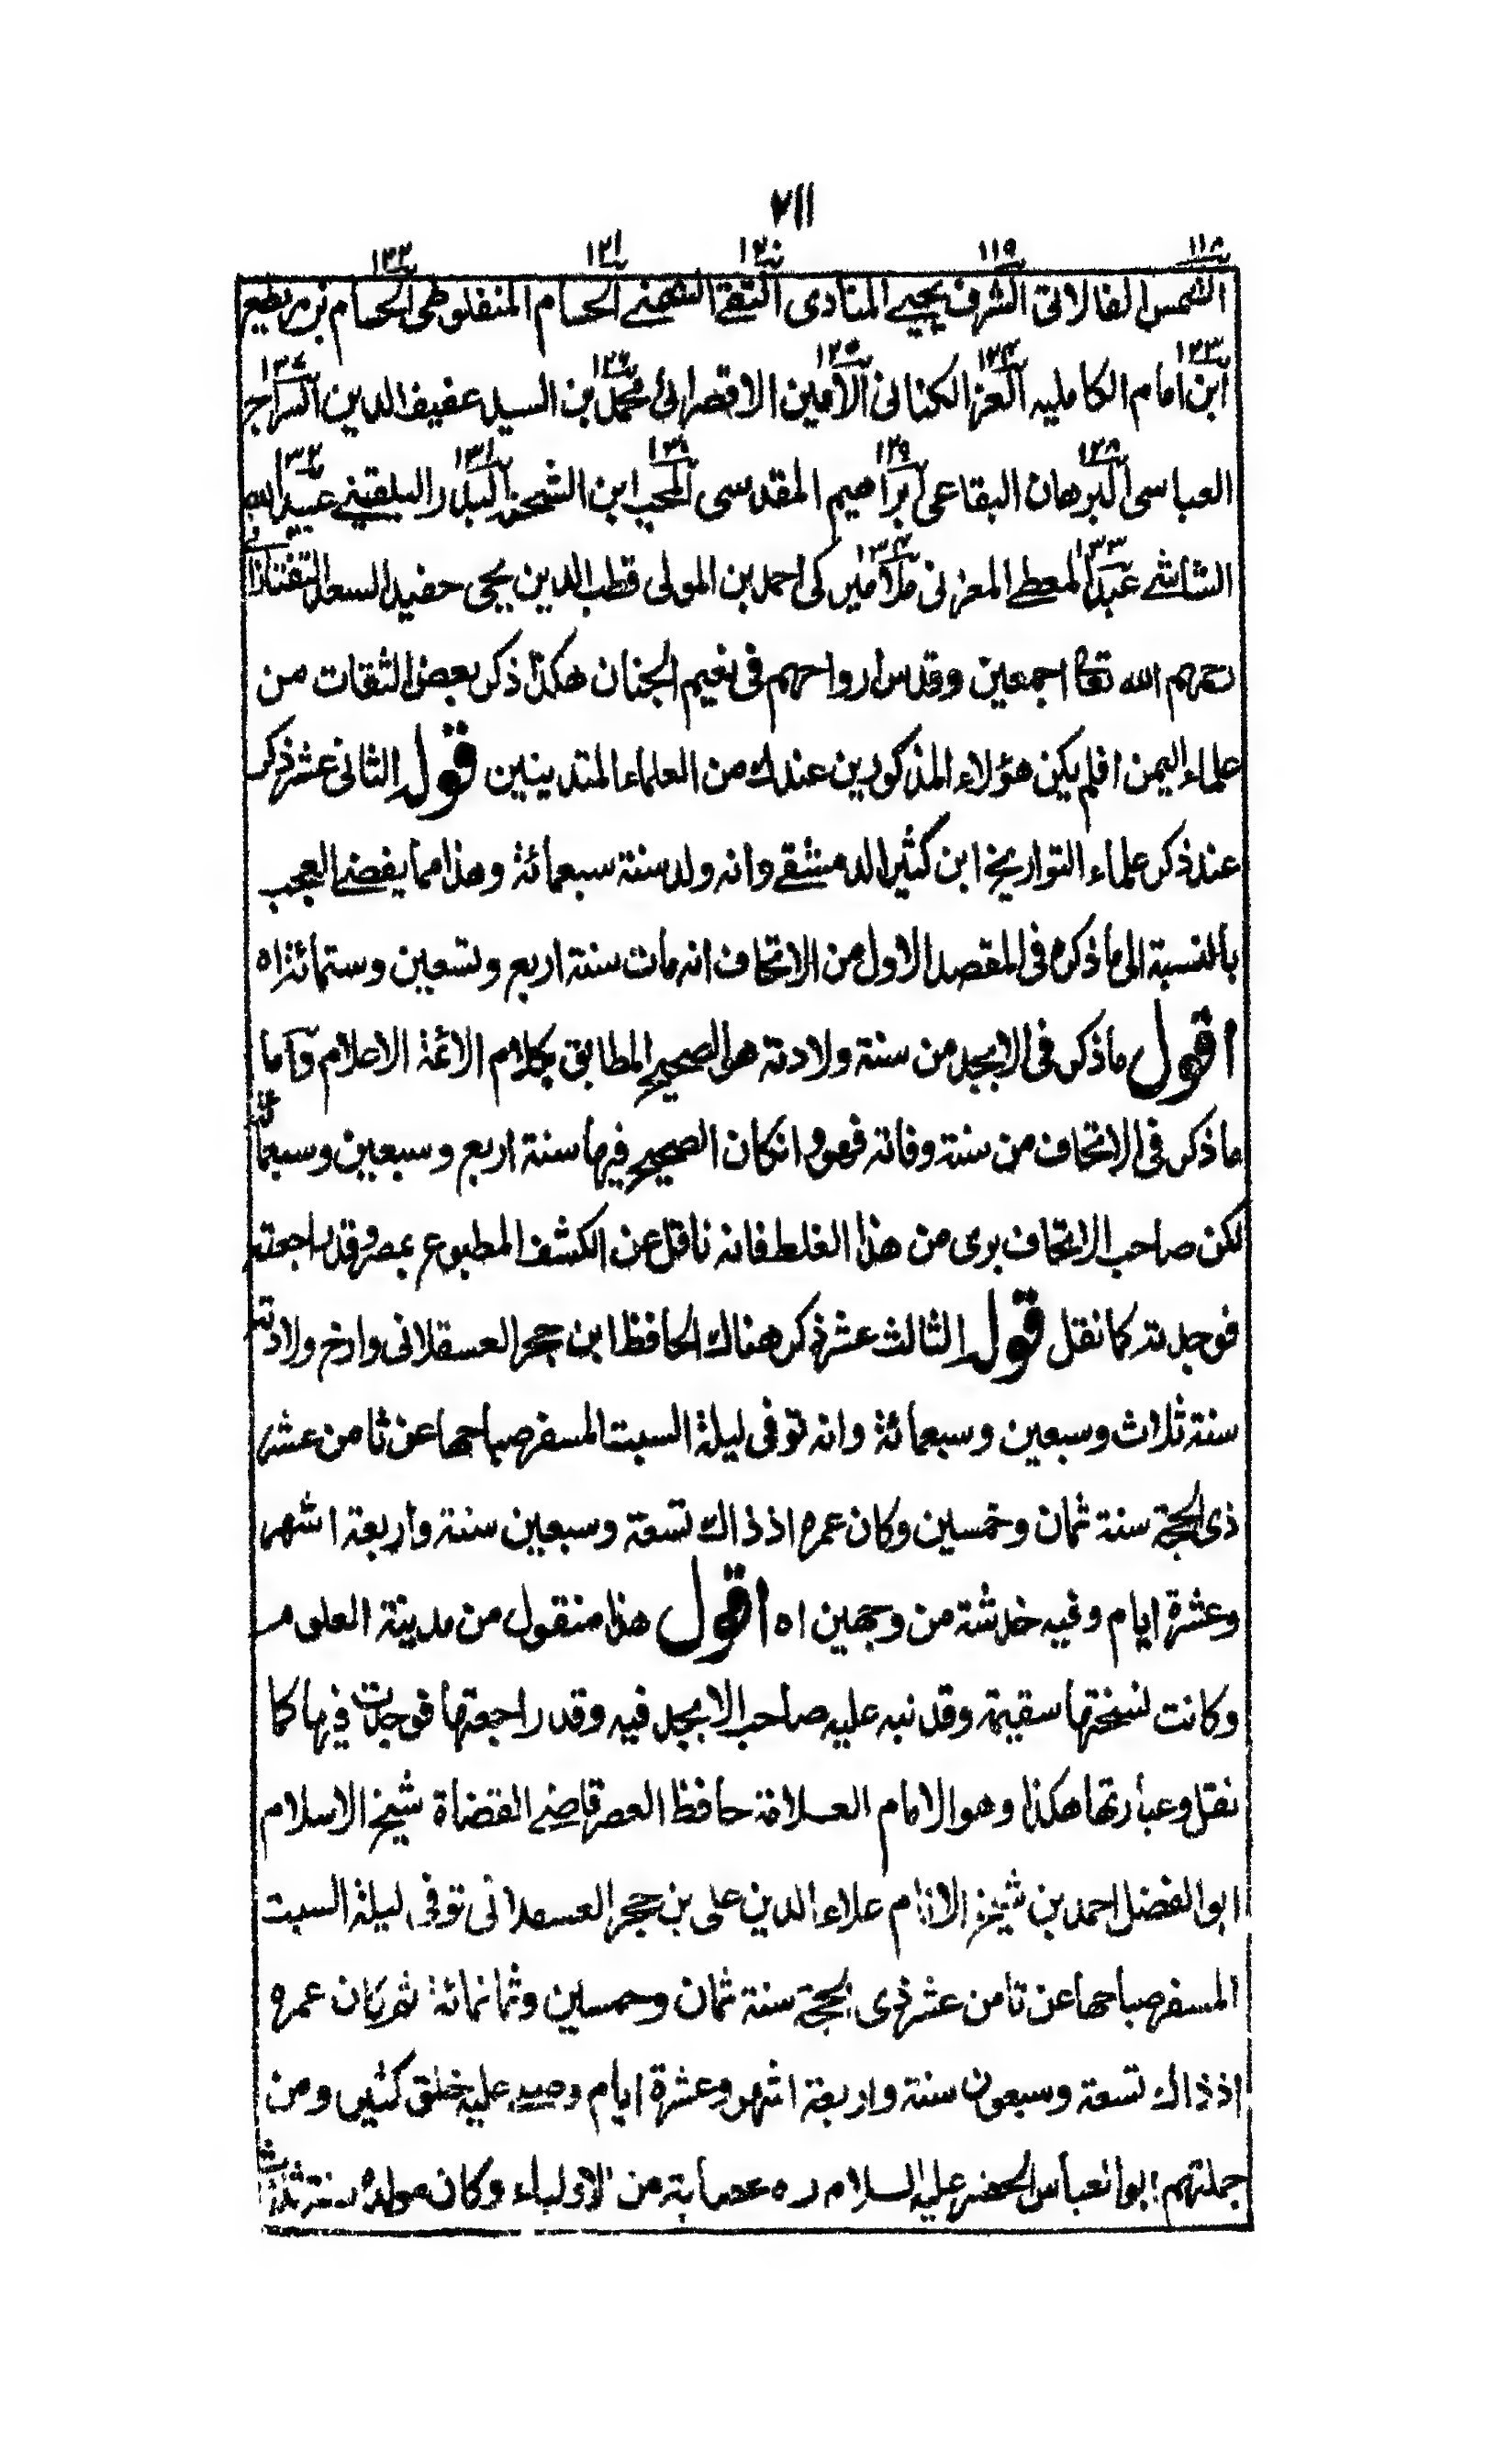 ٧١١
١١٨ ١١٩ ١٢٠ ١٢١ ١٢٢
الشمس الفالاتی الشرف یحیی المنادی التقی الشمنی الحسام المنفلوطی الحسام بن بریطیع
١٢٣ ١٢٤ ١٢٥ ١٢٦ ١٢٧
ابن امام الکاملیه العز الکنانی الامین الاقصرائی محمد بن السید عفیف الدین السراج
١٢٨ ١٢٩ ١٣٠ ١٣١ ١٣٢
العباسی البرهان البقاعی ابراهیم المقدسی المحب ابن الشحنة البدر البلقینی عبید الله
١٣٣ ١٣٤
الشاشی عبد المعطی المغربی ملا میرکی احمد بن المولی قطب الدین یحیی حفید السعد التفتازانی
رحمهم الله تعا اجمعین وقدس ارواحهم فی نعیم الجنان هکذا ذکر بعض الثقات من
علماء الیمن افلم یکن هؤلاء المذکورین عندك من العلماء المتدینین قوله الثانی عشر ذکر
عند ذکر علماء التواریخ ابن کثیر الدمشقی وانه ولد سنة سبعمائة وهذا مما یفضی العجب
بالنسبة الی ما ذکره فی المقصد الاول من الاتحاف انه مات سنة اربع وتسعین وستمائة اه
اقول ما ذکر فی الابجد من سنة ولادته هو الصحیح المطابق بکلام الائمة الاعلام واما
ما ذکر فی الاتحاف من سنة وفاته فهو وانکان الصحیح فیها سنة اربع وسبعین وسبعمائة
لکن صاحب الاتحاف بری من هذا الغلط فانه ناقل عن الکشف المطبوع بمصر وقد راجعته
فوجدته کما نقل قوله الثالث عشر ذکر هناك الحافظ ابن حجر العسقلانی وارخ ولادته
سنة ثلاث وسبعین وسبعمائة وانه توفی لیلة السبت المسفر صباحها عن ثامن عشر
ذی الحجة سنة ثمان وخمسین وکان عمره اذ ذاك تسعة وسبعین سنة واربعة اشهر
وعشرة ایام وفیه خدشة من وجهین اه اقول هذا منقول من مدینة العلوم
وکانت نسختها سقیمة وقد نبه علیه صاحب الابجد فیه وقد راجعتها فوجدت فیها کما
نقل وعبارتها هکذا وهو الامام العلامة حافظ العصر قاضی القضاة شیخ الاسلام
ابو الفضل احمد بن شیخ الانام علاء الدین علی بن حجر العسقلانی توفی لیلة السبت
المسفر صباحها عن ثامن عشر ذی الحجة سنة ثمان وخمسین وثمانمائة ثم کان عمره
اذ ذاك تسعة وسبعون سنة واربعة اشهر وعشرة ایام وصلی علیه خلق کثیر ومن
جملتهم ابو العباس الخضر علیه السلام ره عصابة من الاولیاء وکان مولده سنة ثلاث